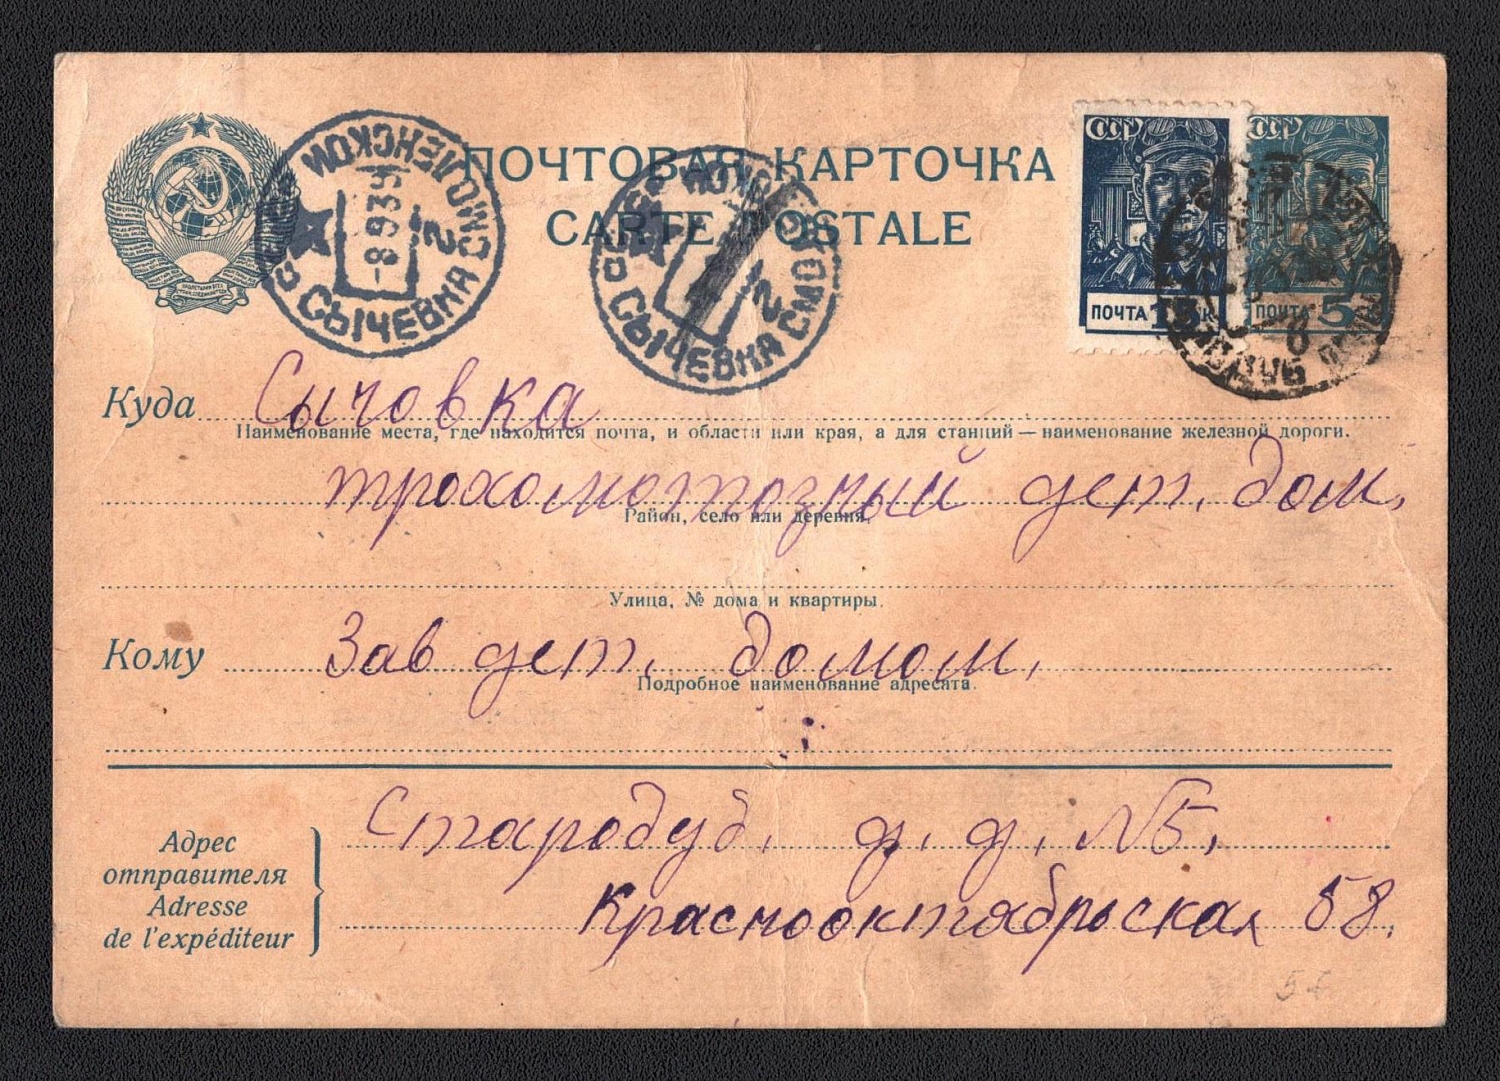 ПОЧТОВАЯ КАРТОЧКА
CARTE POSTALE
СЫЧЕВКА СМОЛЕНСКОЙ
2
-8 9 39
СЫЧЕВКА СМОЛ
2
СССР
ПОЧТА 15 К
СССР
ПОЧТА 5
Куда Сычовка
Наименование места, где находится почта, и области или края, а для станций — наименование железной дороги.
трохоматозный дет. дом.
Район, село или деревня.
Улица, № дома и квартиры.
Кому Зав дет. домом.
Подробное наименование адресата.
Адрес
отправителя
Adresse
de l'expéditeur
Стародуб. д. д. №5,
Краснооктябрьская 58.